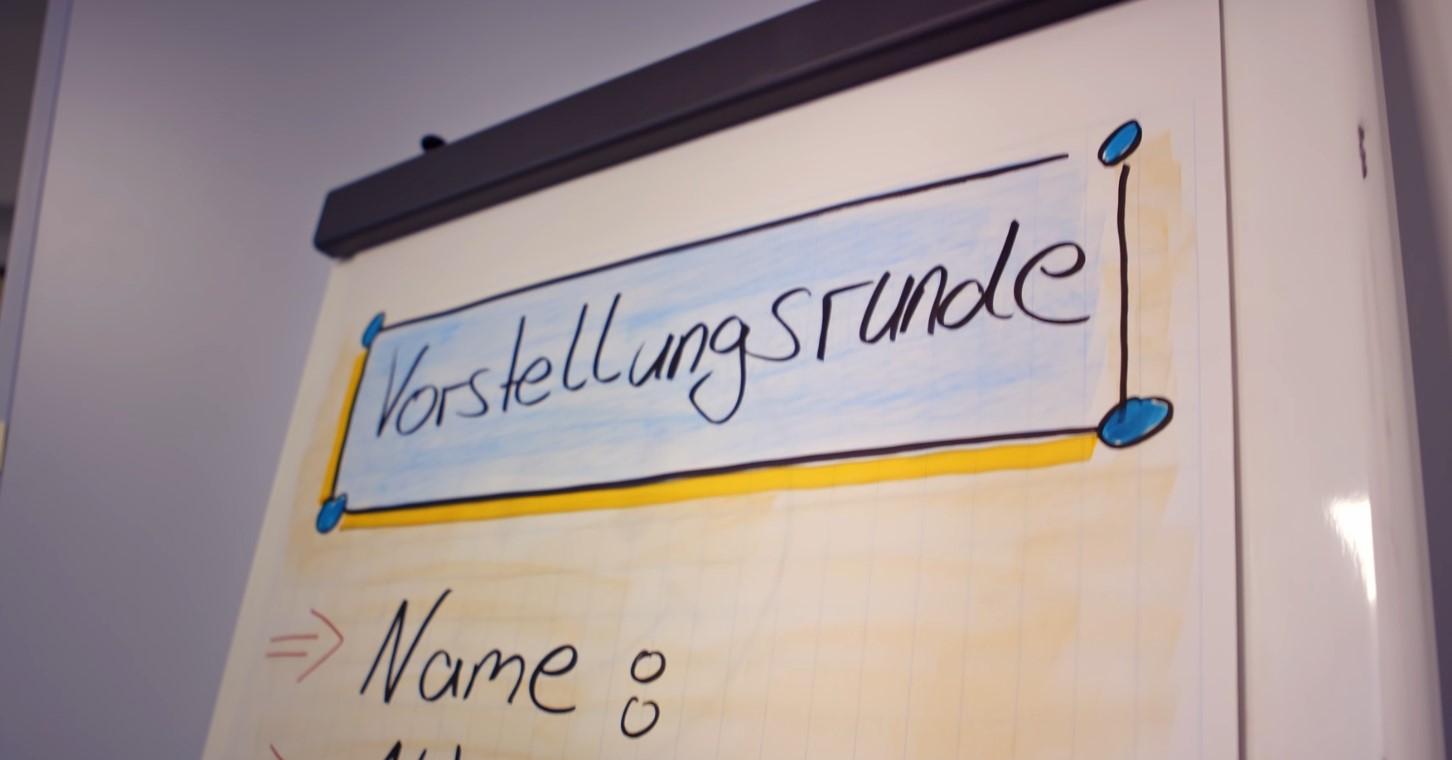 Vorstellungsrunde
⇒ Name: